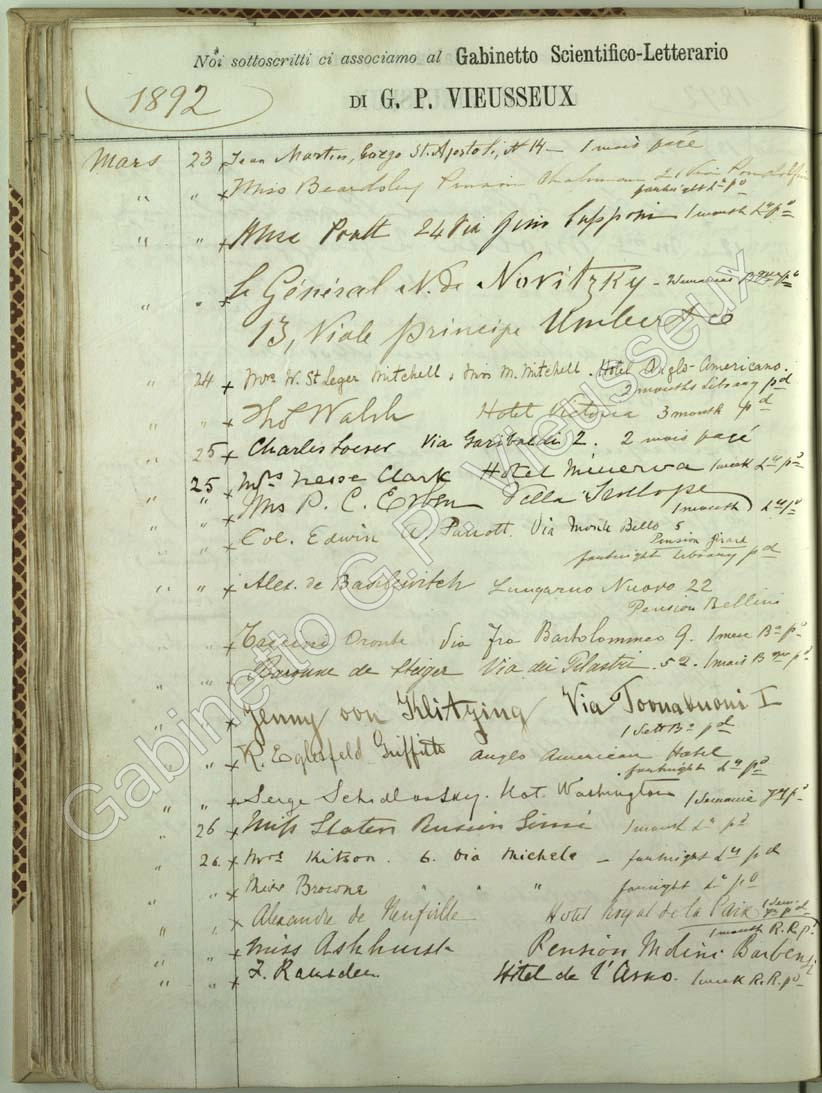 Noi sottoscritti ci associamo al Gabinetto Scientifico-Letterario
1892
DI G. P. VIEUSSEUX
Mars 23 Jean Martin, Borgo St. Apostoli, N 14 — 1 mois payé
" " x Miss Beardsley Pension
fortnight Ly pd
" " x Miss Pratt 24 Via Gino Capponi 1 month Ly pd
" " x Le Général N. de Novitzky —
13, Viale principe Umberto
" 24 x Mrs W. St Leger Mitchell, Miss M. Mitchell. Hotel Anglo-Americano.
2 months Library pd
" " x Thos Walsh Hotel Victoria 3 month pd
" 25 x Charles Loeser Via Garibaldi 2. 2 mois payé
25 x Mrs Clark Hotel Minerva 1 week Ly pd
" " x P. C. Villa Trollope 1 month Ly pd
" " x Col. Edwin A. Parrott. Via Monte Bello 5
Pension Girard
fortnight library pd
" " x Alex. de Basilewitch Lungarno Nuovo 22
Pension Bellini
" " x Oronte Via Fra Bartolommeo 9. 1 mese Bo pd
" " x Baronne de Steiger Via dei Pilastri. 52. 1 mois pd
" " x Jenny von Klitzing Via Tornabuoni I
1 Sett Bo pd
" " x R. Eglesfeld Griffith Anglo American Hotel
fortnight Ly pd
" " x Serge Schidlovsky. Hot. Washington 1 Semaine pd
" 26 x Miss Slater Pension Simi 1 month Ly pd
" 26. x Mrs Kitson. 6. Via Michele — fortnight Ly pd
" " x Miss Browne " " " fortnight Ly pd
" " x Alexandre de Neufville Hotel Royal de la Paix 1 Sem. pd
1 month R.R. pd
" " x Miss Ashhurst Pension Molini Barbensi
" " x F. Ramsden Hôtel de l'Arno. 1 week R.R. pd
Gabinetto G.P. Vieusseux